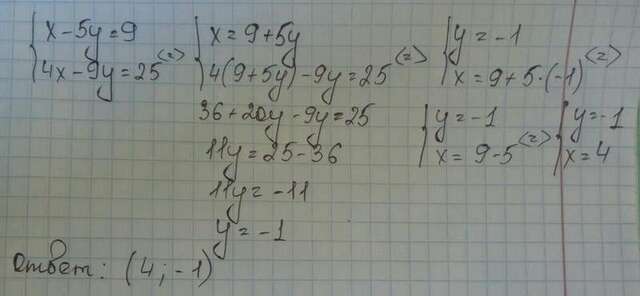 {x-5y=9
{4x-9y=25 <=>
{x=9+5y
{4(9+5y)-9y=25 <=>
36+20y-9y=25
11y=25-36
11y=-11
y=-1
{y=-1
{x=9+5·(-1) <=>
{y=-1
{x=9-5 <=>
{y=-1
{x=4
Ответ: (4; -1)